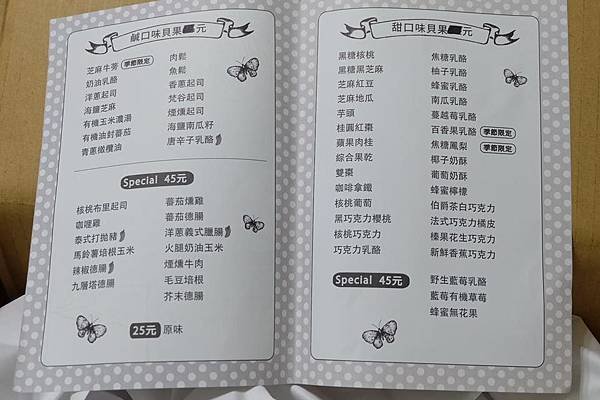 鹹口味貝果 元
芝麻牛蒡 季節限定
奶油乳酪
洋蔥起司
海鹽芝麻
有機玉米濃湯
有機油封蕃茄
青蔥橄欖油
肉鬆
魚鬆
香蔥起司
梵谷起司
煙燻起司
海鹽南瓜籽
唐辛子乳酪
Special 45元
核桃布里起司
咖哩雞
泰式打拋豬
馬鈴薯培根玉米
辣椒德腸
九層塔德腸
蕃茄燻雞
蕃茄德腸
洋蔥義式臘腸
火腿奶油玉米
煙燻牛肉
毛豆培根
芥末德腸
25元 原味
甜口味貝果 元
黑糖核桃
黑糖黑芝麻
芝麻紅豆
芝麻地瓜
芋頭
桂圓紅棗
蘋果肉桂
綜合果乾
雙棗
咖啡拿鐵
核桃葡萄
黑巧克力櫻桃
核桃巧克力
巧克力乳酪
焦糖乳酪
柚子乳酪
蜂蜜乳酪
南瓜乳酪
蔓越莓乳酪
百香果乳酪 季節限定
焦糖鳳梨 季節限定
椰子奶酥
葡萄奶酥
蜂蜜檸檬
伯爵茶白巧克力
法式巧克力橘皮
榛果花生巧克力
新鮮香蕉巧克力
Special 45元
野生藍莓乳酪
藍莓有機草莓
蜂蜜無花果